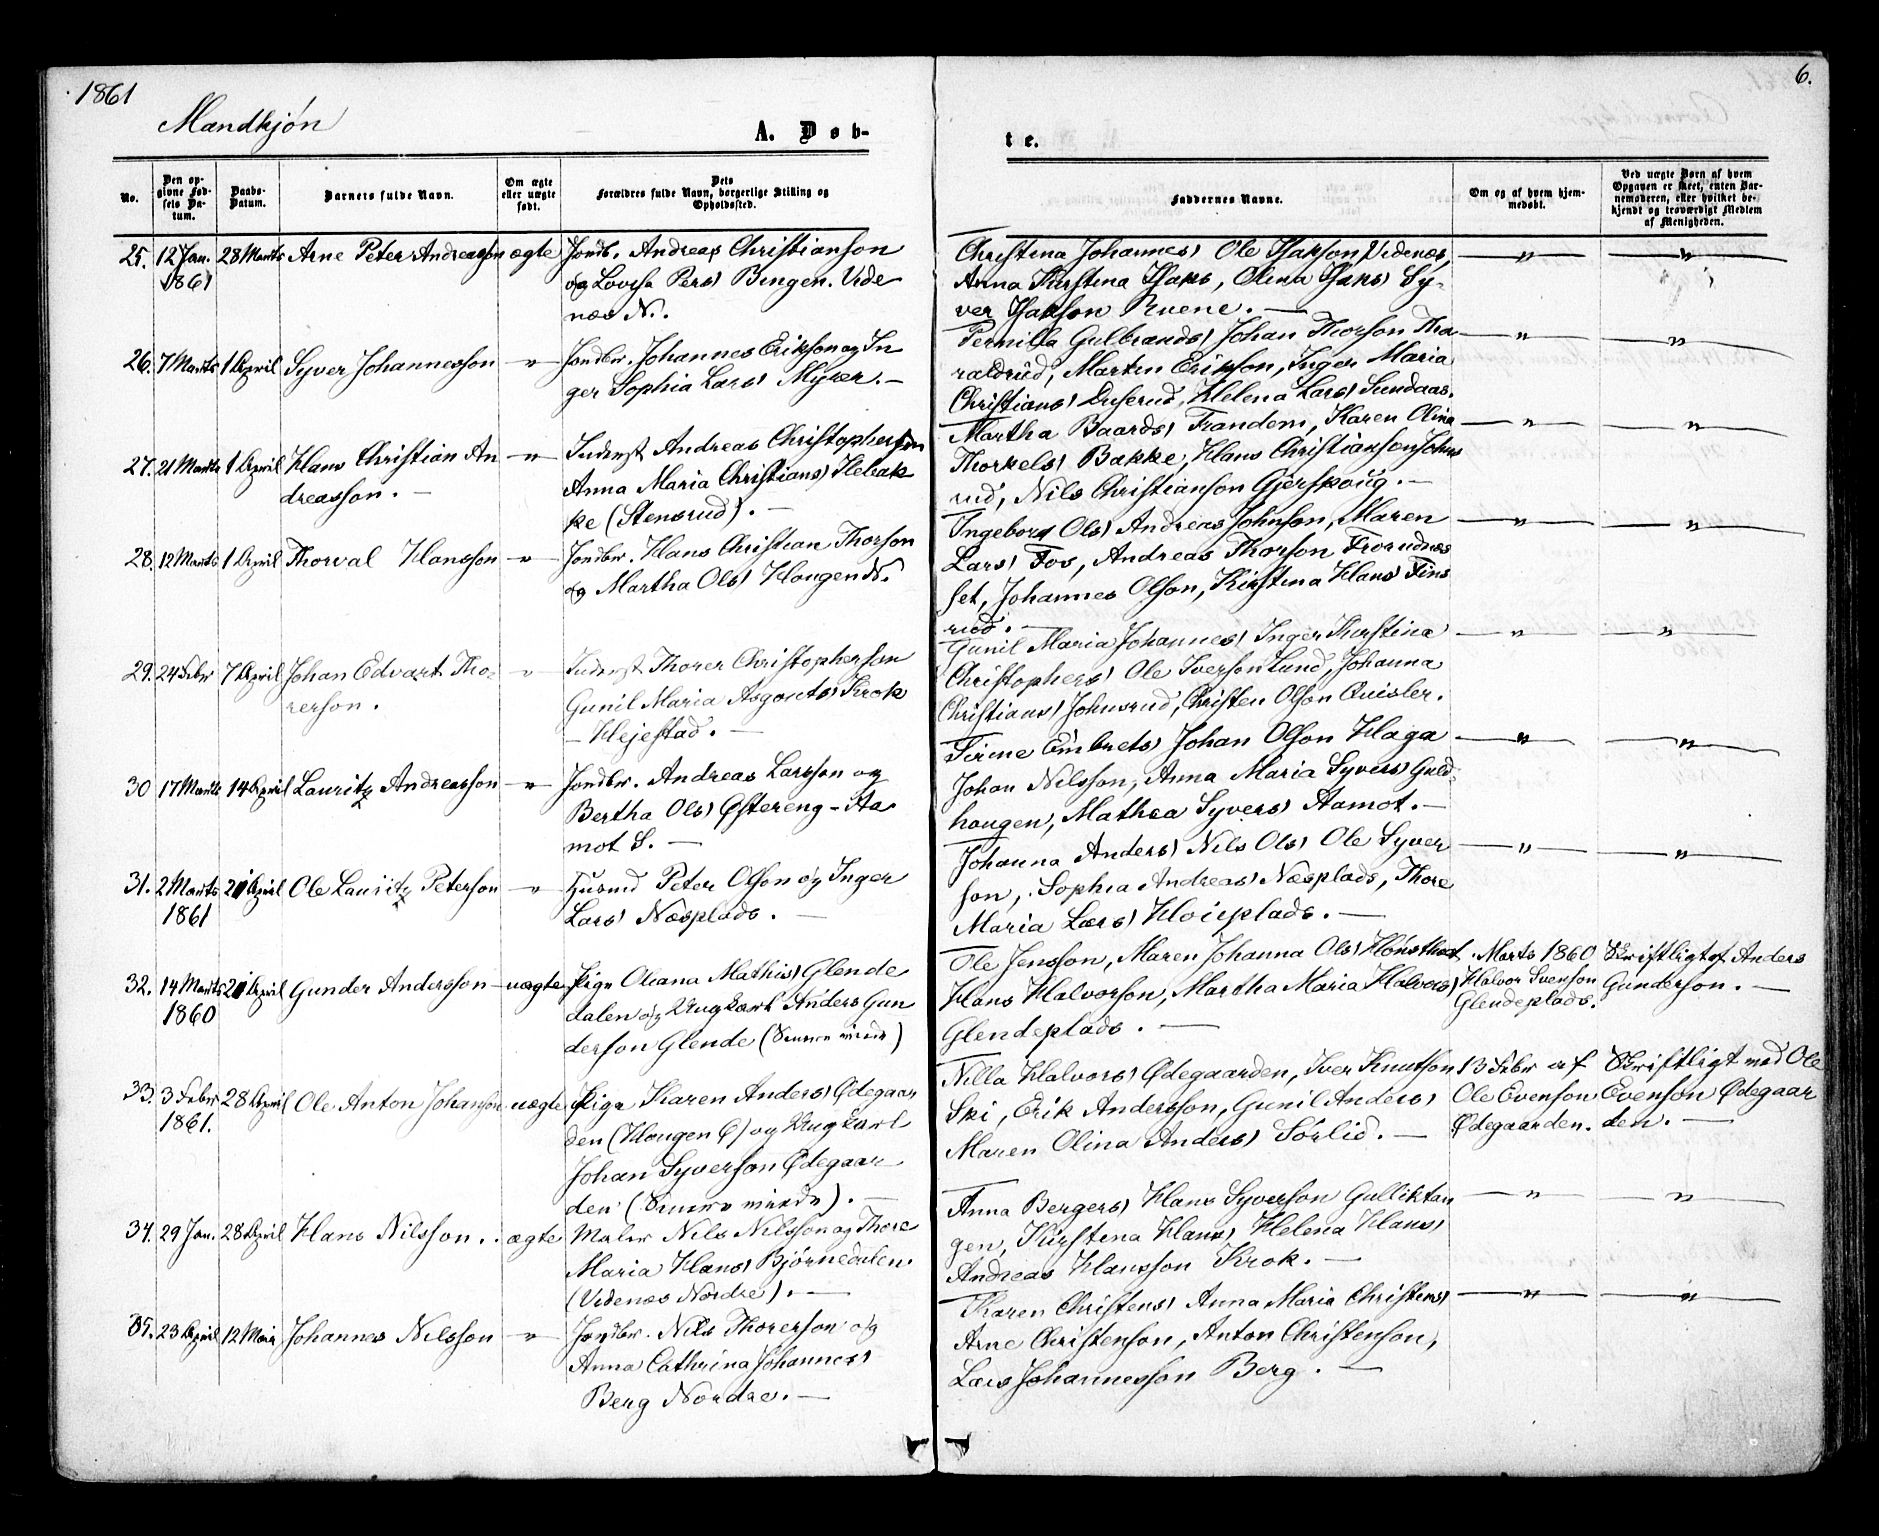 1861
6.
Mandkjøn
A. Døb-
te.
No.
Den op-
givne Fød-
sels Da-
tum.
Daabs-
Datum.
Barnets fulde Navn.
Om ægte
eller uægte
født.
Dets
Forældres fulde Navn, borgerlige Stilling og
Opholdssted.
Faddernes Navne.
Om og af hvem hjem-
medøbt.
Ved uægte Børn af hvem
Opgaven er skeet, enten Bar-
nemoderen, eller hvilket be-
kjendt og troværdigt Medlem
af Menigheden.
25. 12 Jan. 1861 28 Marts Arne Peter Andreasson ægte
Jordb. Andreas Christianson
og Lovisa Pers) Bingen. Vide
næs N.
Christina Johannes) Ole Isakson Videnæs,
Anna Kirstina Isaks, Olina Isaks) Sy-
ver Isakson Ruene. — " "
26. 7 Marts 1 April Syver Johannesson "
Jordbr. Johannes Erikson og In
ger Sophia Lars) Myrer. —
Pernilla Gulbrands) Johan Thorson Tha
raldrud, Martin Erikson, Inger Maria
Christians) Duserud, Helena Lars) Sundaas. " "
27. 21 Marts 1 April Hans Christian An
dreasson. — "
Inderst Andreas Christopherson
Anna Maria Christians) Hebak
ke (Stensrud). —
Martha Baards) Frandem, Karen Olina
Thorkels) Bakke, Hans Christianson Johns
rud, Nils Christianson Gjerskoug. — " "
28. 12 Marts 1 April Thorval Hansson "
Jordbr. Hans Christian Thorson
og Martha Ols) Haugen N.
Ingeborg Ols) Andreas Johnson, Maren
Lars) Fos, Andreas Thorson
set, Johannes Olson, Kirstina Hans) Fins
rud. — " "
29. 24 Febr 7 April Johan Edvart Tho-
rerson. "
Inderst Thorer Christopherson
Gunil Maria Asgouts) Krok
— Hejestad. —
Gunil Maria Johannes) Inger Kirstina
Christophers) Ole Iverson Lund, Johanna
Christians) Johnsrud, Christen Olson Quisler. " "
30 17 Marts 14 April Lauritz Andreasson "
Jordbr. Andreas Larsson og
Bertha Ols) Østereng - Aa
mot S. —
Sirine Embrets) Johan Olson Haga
Johan Nilsson, Anna Maria Syvers) Guld-
haugen, Mathea Syvers) Aamot. — " "
31. 2 Marts 1861 21 April Ole Lauritz Peterson "
Husmd Peter Olson og Inger
Lars) Næsplads. —
Johanna Anders) Nils Ols) Ole Syver
son, Sophia Andreas) Næsplads, Thore
Maria Lars) Hoieplads. — " "
32. 14 Marts 1860 21 April Gunder Andersson uægte
Pige Oleana Mathis) Glende
dalen og Ungkarl Anders Gun
derson Glende
Ole Jensson, Maren Johanna Ols)
Hans Halvorson, Martha Maria Halvors)
Glendeplads. —
Marts 1860
Halvor Svenson
Glendeplads.
Skriftligt af Anders
Gunderson. —
33. 3 Febr 1861. 28 April Ole Anton Johanson uægte
Pige Karen Anders) Ødegaar
den (Haugen Ø) og Ungkarl
Johan Syverson Ødegaar
den
Nilla Halvors) Ødegaarden, Iver Knutson
Ski, Erik Andersson, Gunil Anders)
Maren Olina Anders) Sörlid. —
13 Febr af
Ole Evenson
Ødegaarden.
Skriftligt med Ole
Evenson Ødegaar
den. —
34. 29 Jan. 28 April Hans Nilsson. ægte
Maler Nils Nilsson og Thore
Maria Hans) Bjørnedalen.
(Videnæs Nordre). —
Anna Bergers) Hans Syverson Gullikstan
gen, Kirstina Hans) Helena Hans)
Andreas Hansson Krok. — " "
35. 23 April 12 Mai Johannes Nilsson "
Jordbr. Nils Thorerson og
Anna Cathrina Johannes)
Berg Nordre. —
Karen Christens) Anna Maria Christens)
Arne Christenson, Anton Christenson,
Lars Johannesson Berg. — " "